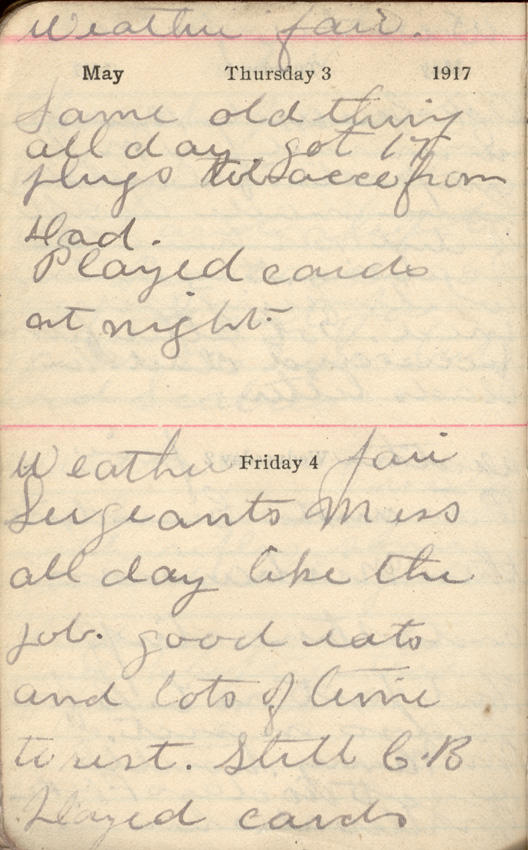 Weather fair.
May Thursday 3 1917
Same old thing
all day got 17
plugs tobacco from
Dad.
Played cards
at night.
Weather Friday 4 fair
Sergeants Mess
all day like the
job. good eats
and lots of time
to rest. Still C.B
Played cards